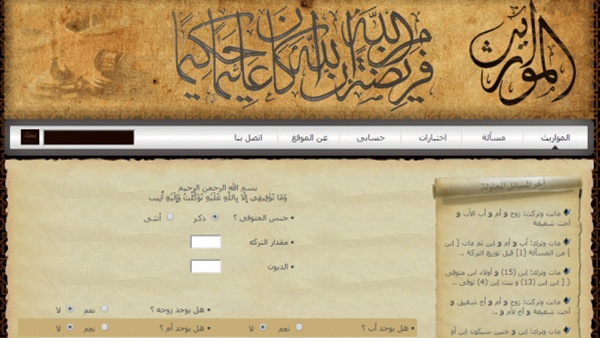 المواريث
فريضة من الله إن الله كان عليما حكيما
المواريث
مسألة
اختبارات
حسابي
عن الموقع
اتصل بنا
بحث
بسم الله الرحمن الرحيم
وَمَا تَوْفِيقِي إِلَّا بِاللَّهِ عَلَيْهِ تَوَكَّلْتُ وَإِلَيْهِ أُنِيب
جنس المتوفى ؟ ذكر أنثى
مقدار التركه
الديون
هل يوجد زوجه ؟ نعم لا
هل يوجد أب ؟ نعم لا هل يوجد أم ؟ نعم لا
آخر المسائل المحلولة
ماتت وتركت: زوج و أم و أب الأب و
أخت شقيقة
مات وترك: أب و أم و إبن ثم مات [ إبن
] من المسألة [1] قبل توزيع التركة ..
مات وترك: إبن (15) و أولاد ابن متوفى
( [ إبن إبن (13) و بنت إبن (4) توفى ..
ماتت وتركت: زوج و أم و أخ شقيق و
أخت شقيقة و أخ لأم و ..
مات وترك: إبن و جنين سيكون إبن أو